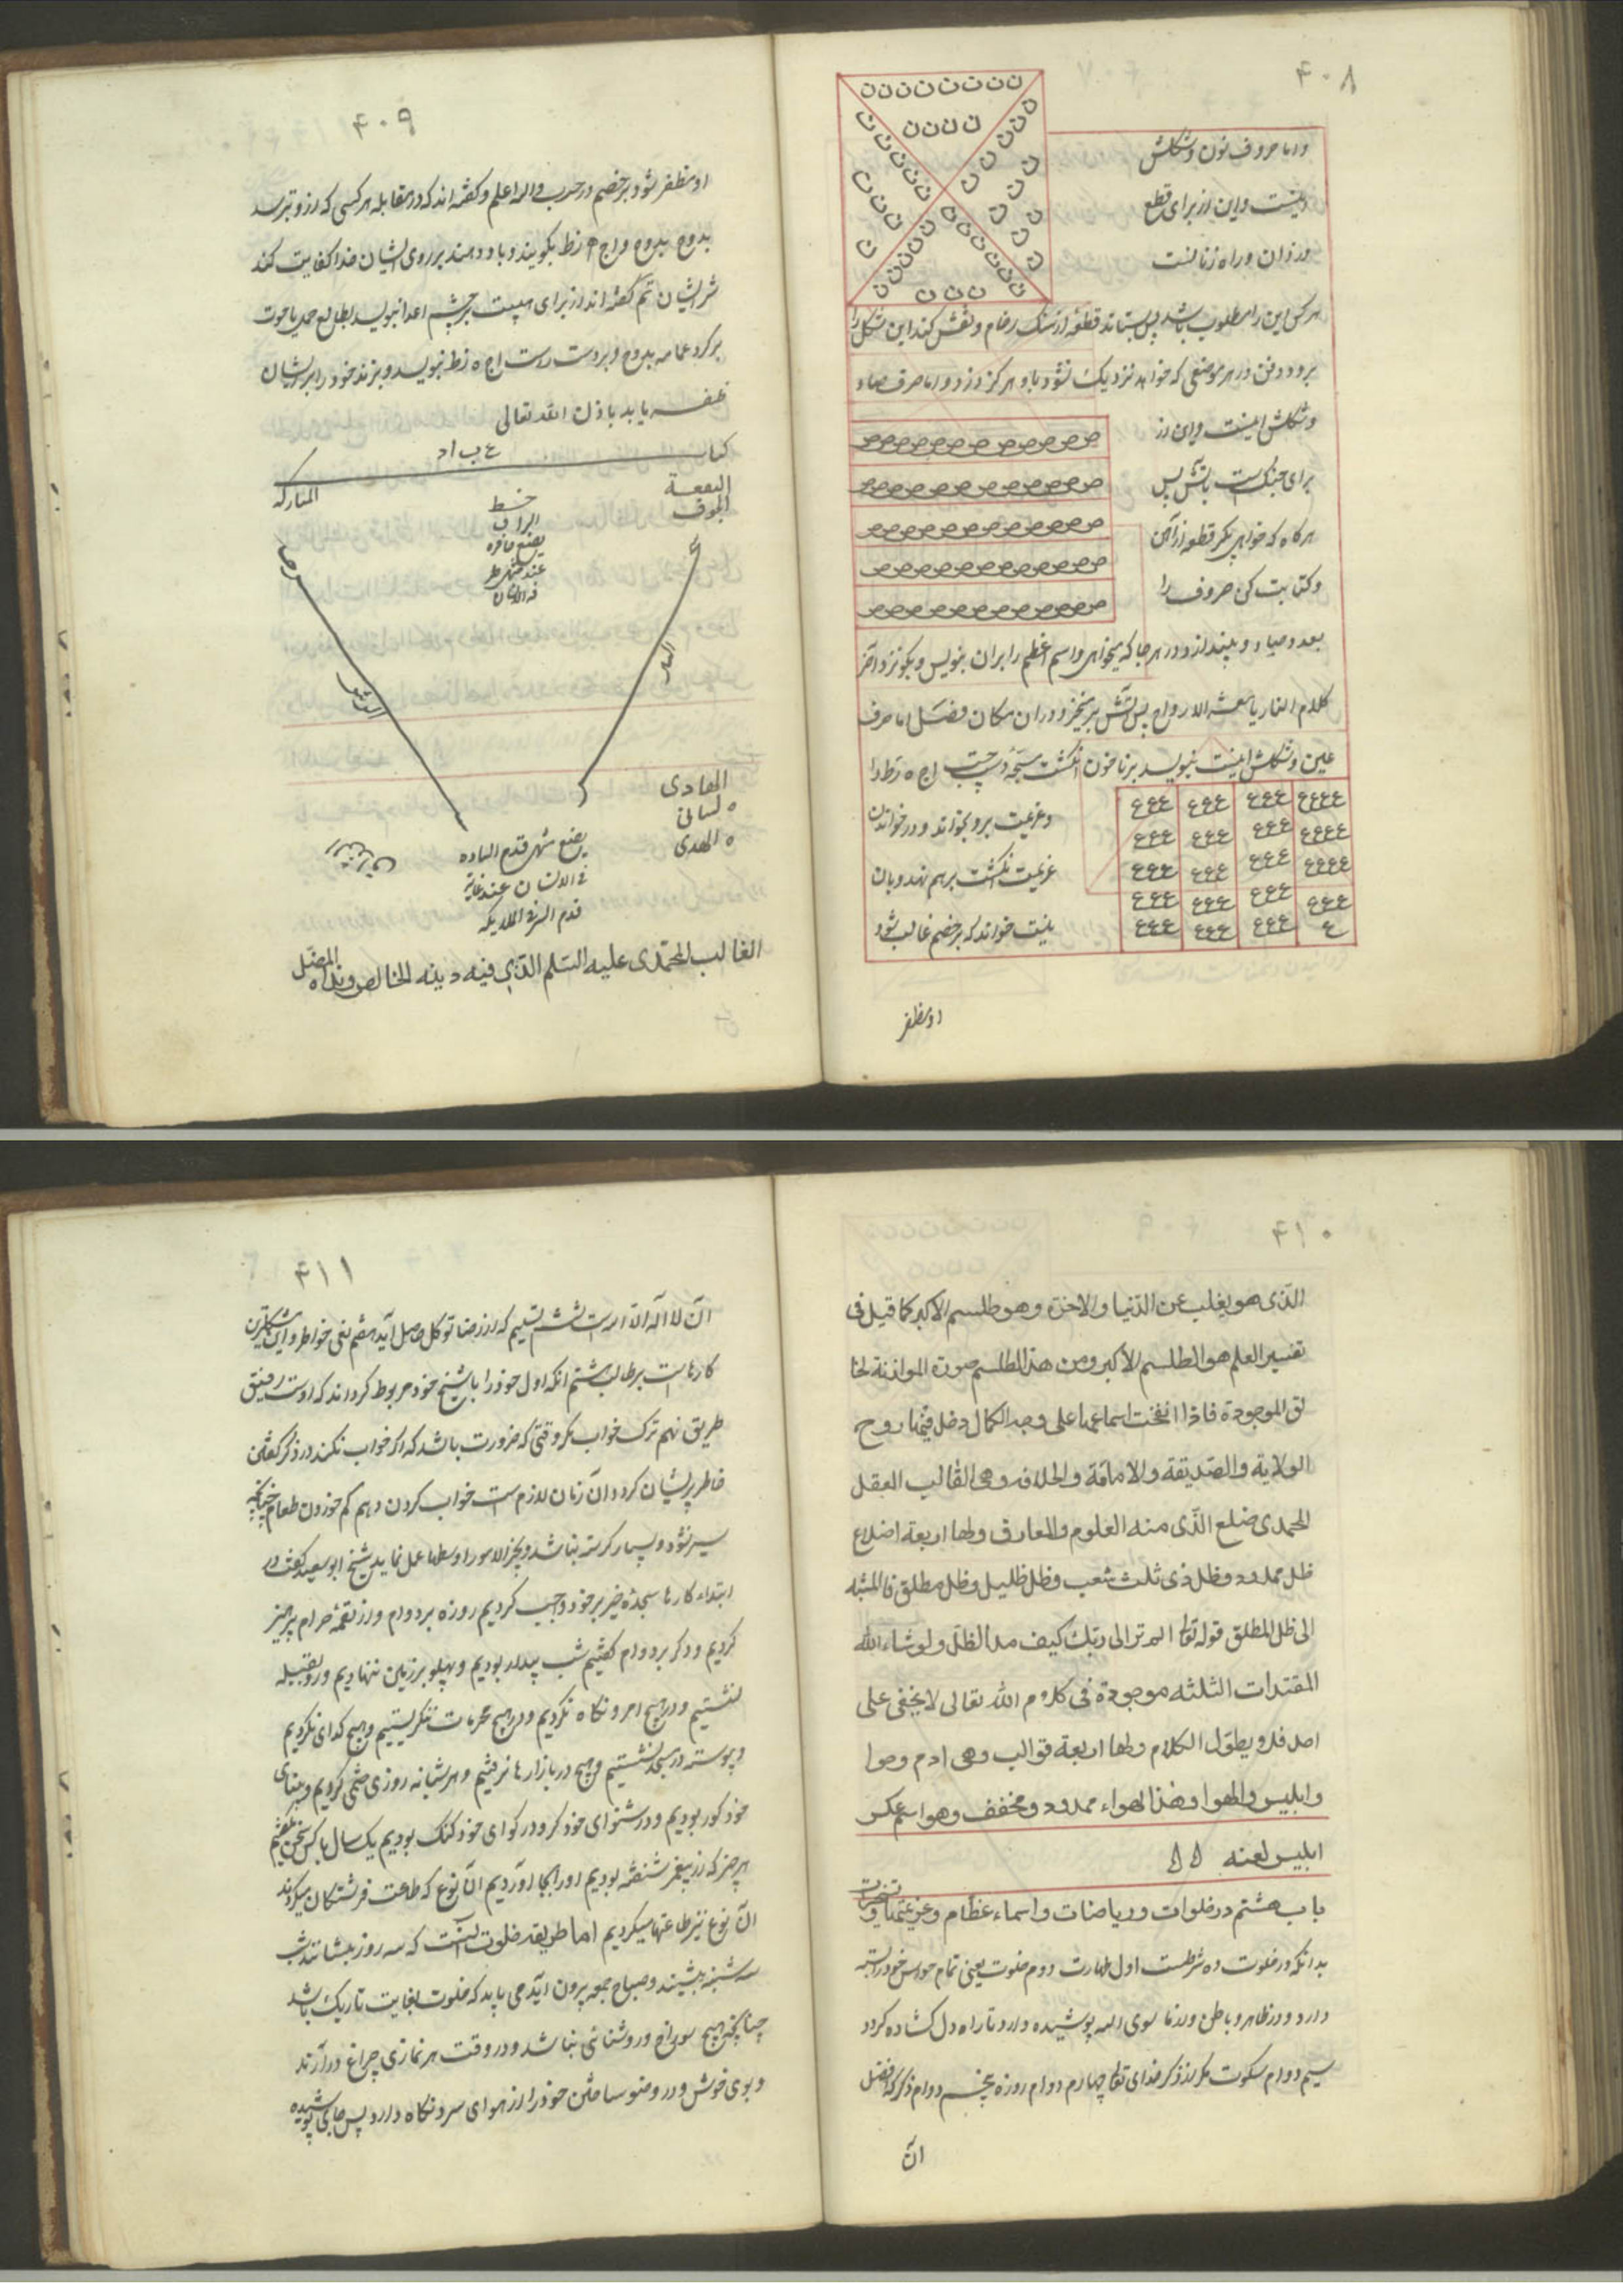 ۴۰۸
ن ن ن ن ن ن ن ن
ن ن ن ن
واما حروف نون و شکلش
اینست و این از برای قطع
دزدان و راه زنانست
هر کس این را مطلوب باشد پس بستاند قطعهٔ از سنک رخام و نقش کند این شکل را
برو و دفن در هر موضعی که خواهد نزدیک نشود باو هرکز دزد و اما حرف صاد
و شکلش اینست و این از
ص ص ص ص ص ص ص ص ص ص
برای جنک است باتش پس
ص ص ص ص ص ص ص ص ص ص
هرکاه که خواهی بکیر قطعه از آهن
ص ص ص ص ص ص ص ص ص ص
و کتابت کن حروف را
ص ص ص ص ص ص ص ص ص ص
ص ص ص ص ص ص ص ص ص ص
بعدد صاد و بینداز در هر جا که میخواهی و اسم اعظم را بران بنویس و بکو نزد آخر
کلام النار یا معشر الارواح پس آتش برمیخیزد دران مکان فصل اما حرف
عین و شکلش اینست بنویسد بر ناخون انکشت سبحهٔ دست چپ اج ه زط را
ععع ععع ععع عععع
و عزیمت برو بخواند و در خواندن
ععع ععع ععع عععع
عزیمت انکشت برهم نهد و بان
ععع ععع ععع عععع
ععع ععع ععع ععع
نیت خواند که بر خصم غالب شود
ععع ععع ععع ع
او مظفر
۴۰۹
او مظفر شود بر خصم در حرب والله اعلم و کفته اند که در مقابله هر کسی که ازو ترسد
بدوح بدوح و اج ه زط بکویند و باد دهند بر روی ایشان خدا کفایت کند
شر ایشان تم کفته اند از برای هیبت بر چشم اعدا بنویسد بطالع حمل یا حوت
بر کرد عمامه بدوح و بر دست راست اج ه زط بنویسد و بزند خود را بر ایشان
ظفر یابد باذن الله تعالی
کتاب ع ب اد
البقعة
المبارکه
خط
الجوف
عند
الهادی
لسانی
المهدی
یضع
قدم
فی الانسان عند
قدم
الغالب المحمدی علیه السلم الذی فیه دینه الخالص و بداه المصل
۴۱۰
الذی هو یغلب عن الدنیا والاخرة و هو طلسم الاکبر کما قیل فی
تفسیر العلم هو الطلسم الاکبر و من هذا الطلسم صورة الموازنة لخا
لق الموجودة فاذا انفخت اسماعها علی وجه الکمال دخل فیها روح
الولایة والصدیقة والامامة والخلافه و هی القالب العقل
المحمدی ضلع الذی منه العلوم والمعارف و لها اربعة اضلاع
ظل ممدود و ظل ذی ثلث شعب و ظل ظلیل و ظل مطلق فالمشبه
الی ظل المطلق قوله تعالی الم تر الی ربک کیف مد الظل و لو شاء الله
المقتدرات الثلثه موجودة فی کلام الله تعالی لا یخفی علی
احد فلا و یطول الکلام و لها اربعة قوالب و هی ادم و حوا
و ابلیس والهوا و هذا الهواء ممدود و مخفف و هو اسم عکس
ابلیس لعنه
باب هشتم در خلوات و ریاضات و اسماء عظام و عزیمتها و تسخیرات
بدانکه در خلوت ده شرطست اول طهارت دوم خلوت یعنی تمام حواس خود را بسته
دارد و در ظاهر و باطن و از ما سوی الله پوشیده دارد تا راه دل کشاده کردد
سیم دوام سکوت مکر از ذکر خدای تعالی چهارم دوام روزه پنجم دوام ذکر که افضل
آن
۴۱۱
آن لا اله الا الله است ششم تسلیم که از رضا توکل حاصل آید هفتم نفی خواطر و این مشکلترین
کارهاست بر طالب هشتم آنکه اول خود را با شیخ خود مربوط کرداند که اوست رفیق
طریق نهم ترک خواب مکر وقتی که ضرورت باشد که اکر خواب نکند در ذکر کفتن
خاطر پریشان کردد آن زمان لازم است خواب کردن دهم کم خوردن طعام چنانکه
سیر نشود و بسیار کرسنه نباشد و بخیر الامور اوسطها عمل نماید شیخ ابو سعید کفت در
ابتداء کارها سجدهٔ خیر بر خود واجب کردیم روزه بر دوام و از لقمهٔ حرام پرهیز
کردیم و ذکر بر دوام کفتیم شب بیدار بودیم و پهلو بر زمین ننهادیم و رو بقبله
نشستیم و در هیچ امرد نکاه نکردیم و در هیچ محرمات ننکریستیم و هیچ کدای نکردیم
و پیوسته در مسجد نشستیم و هیچ در بازارها نرفتیم و هر شبانه روزی ختمی کردیم و بینای
خود کور بودیم و در شنوای خود کر و در کوای خود کنک بودیم یک سال با کس سخن نکفتیم
هر چیز که از پیغمبر شنفته بودیم او را بجا آوردیم آن نوع که طاعت فرشتکان میکردند
آن نوع نیز طاعتها میکردیم اما طریقه خلوت اینست که سه روز بنشانند شب
سه شنبه بنشیند و صباح جمعه بیرون آید می باید که خلوت بغایت تاریک باشد
چنانچه هیچ سوراخ و روشنائی نباشد و در وقت هر نمازی چراغ در آرند
و بوی خوش و در وضو ساختن خود را از هوای سرد نکاه دارد پس جای پوشیده